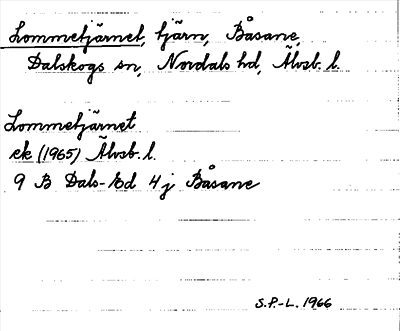 Lommetjärnet, tjärn, Båsane,
Dalskogs sn, Nordals hd, Älvsb. l.
Lommetjärnet
ek (1965) Älvsb. l.
9 B Dals-Ed 4j Båsane
S.P.-L. 1966